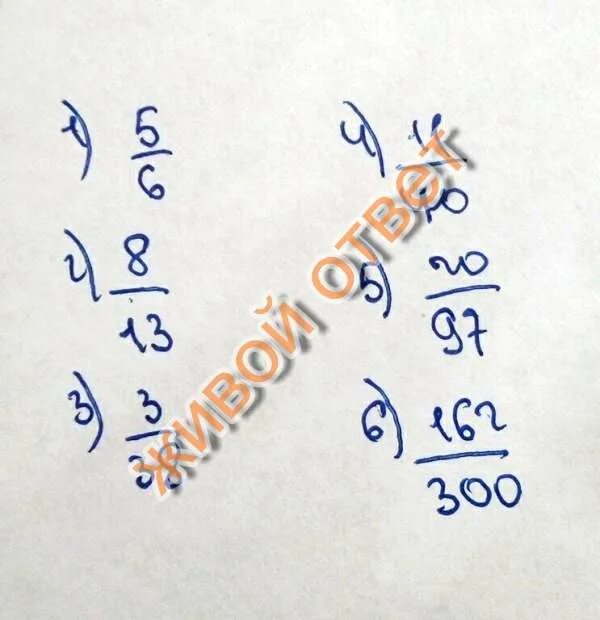 1) 5/6
2) 8/13
3) 3
4)
5) 20/97
6) 162/300
ЖИВОЙ ОТВЕТ